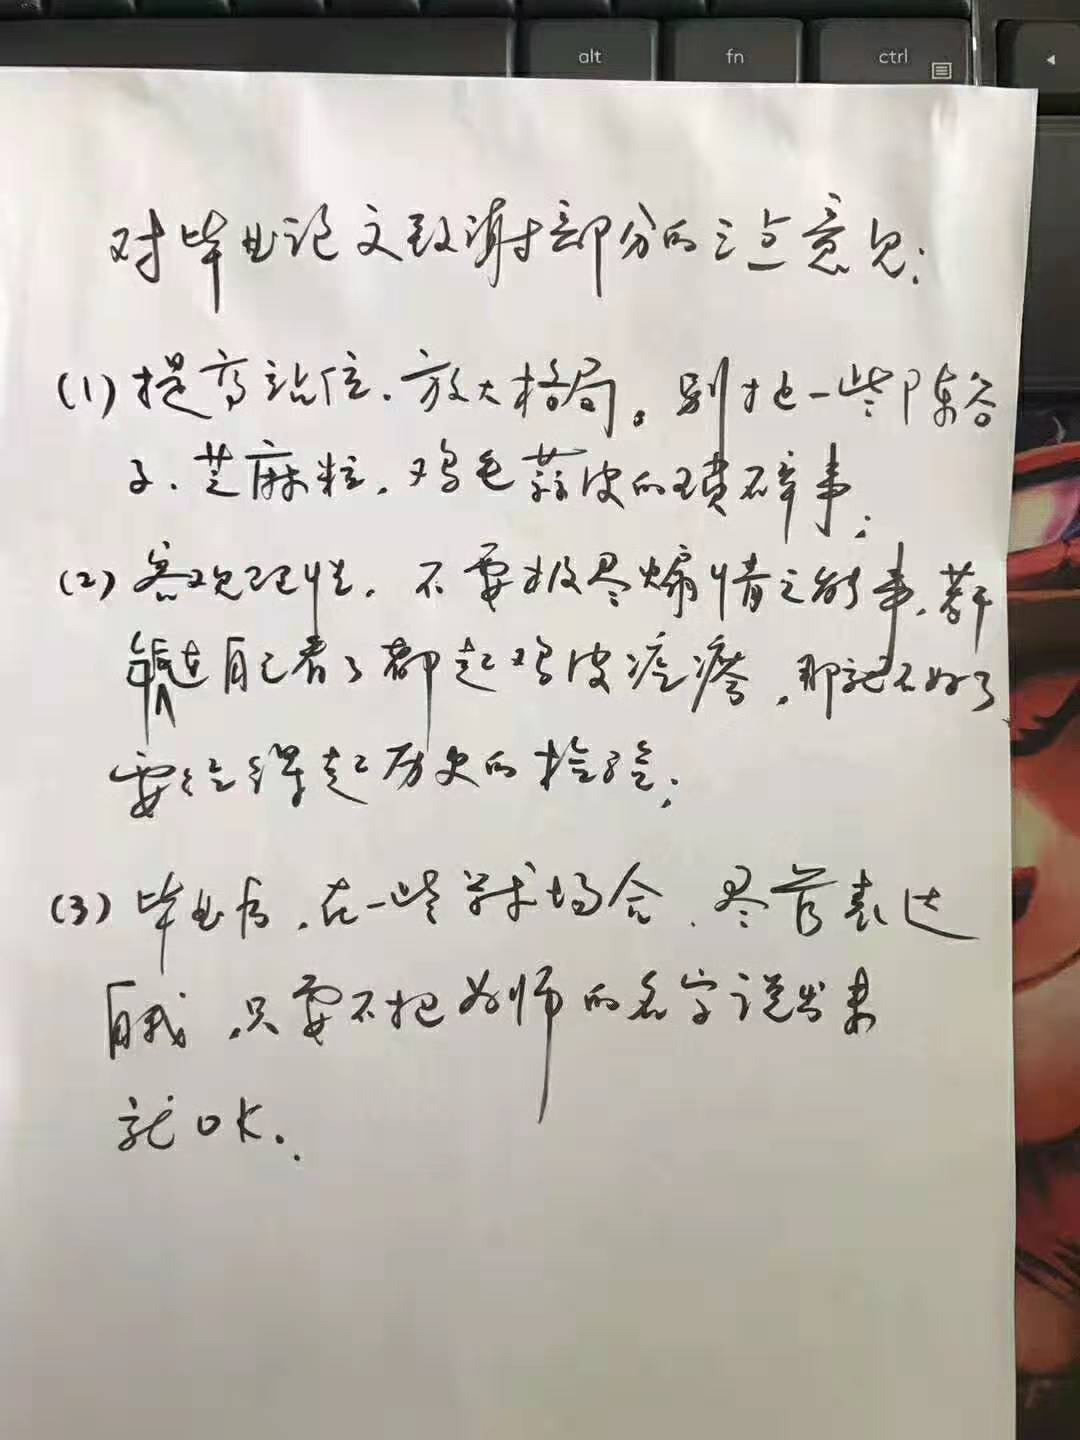 alt fn ctrl
对毕业论文致谢部分的三点意见:
(1)提高站位、放大格局。别把一些陈谷
子、芝麻粒,鸡毛蒜皮的琐碎事;
(2)客观理性,不要极尽煽情之能事,若干
年后连自己看了都起鸡皮疙瘩,那就不好了
要经得起历史的检验;
(3)毕业后,在一些学术场合,尽管表达
自我,只要不把为师的名字说出来
就OK.